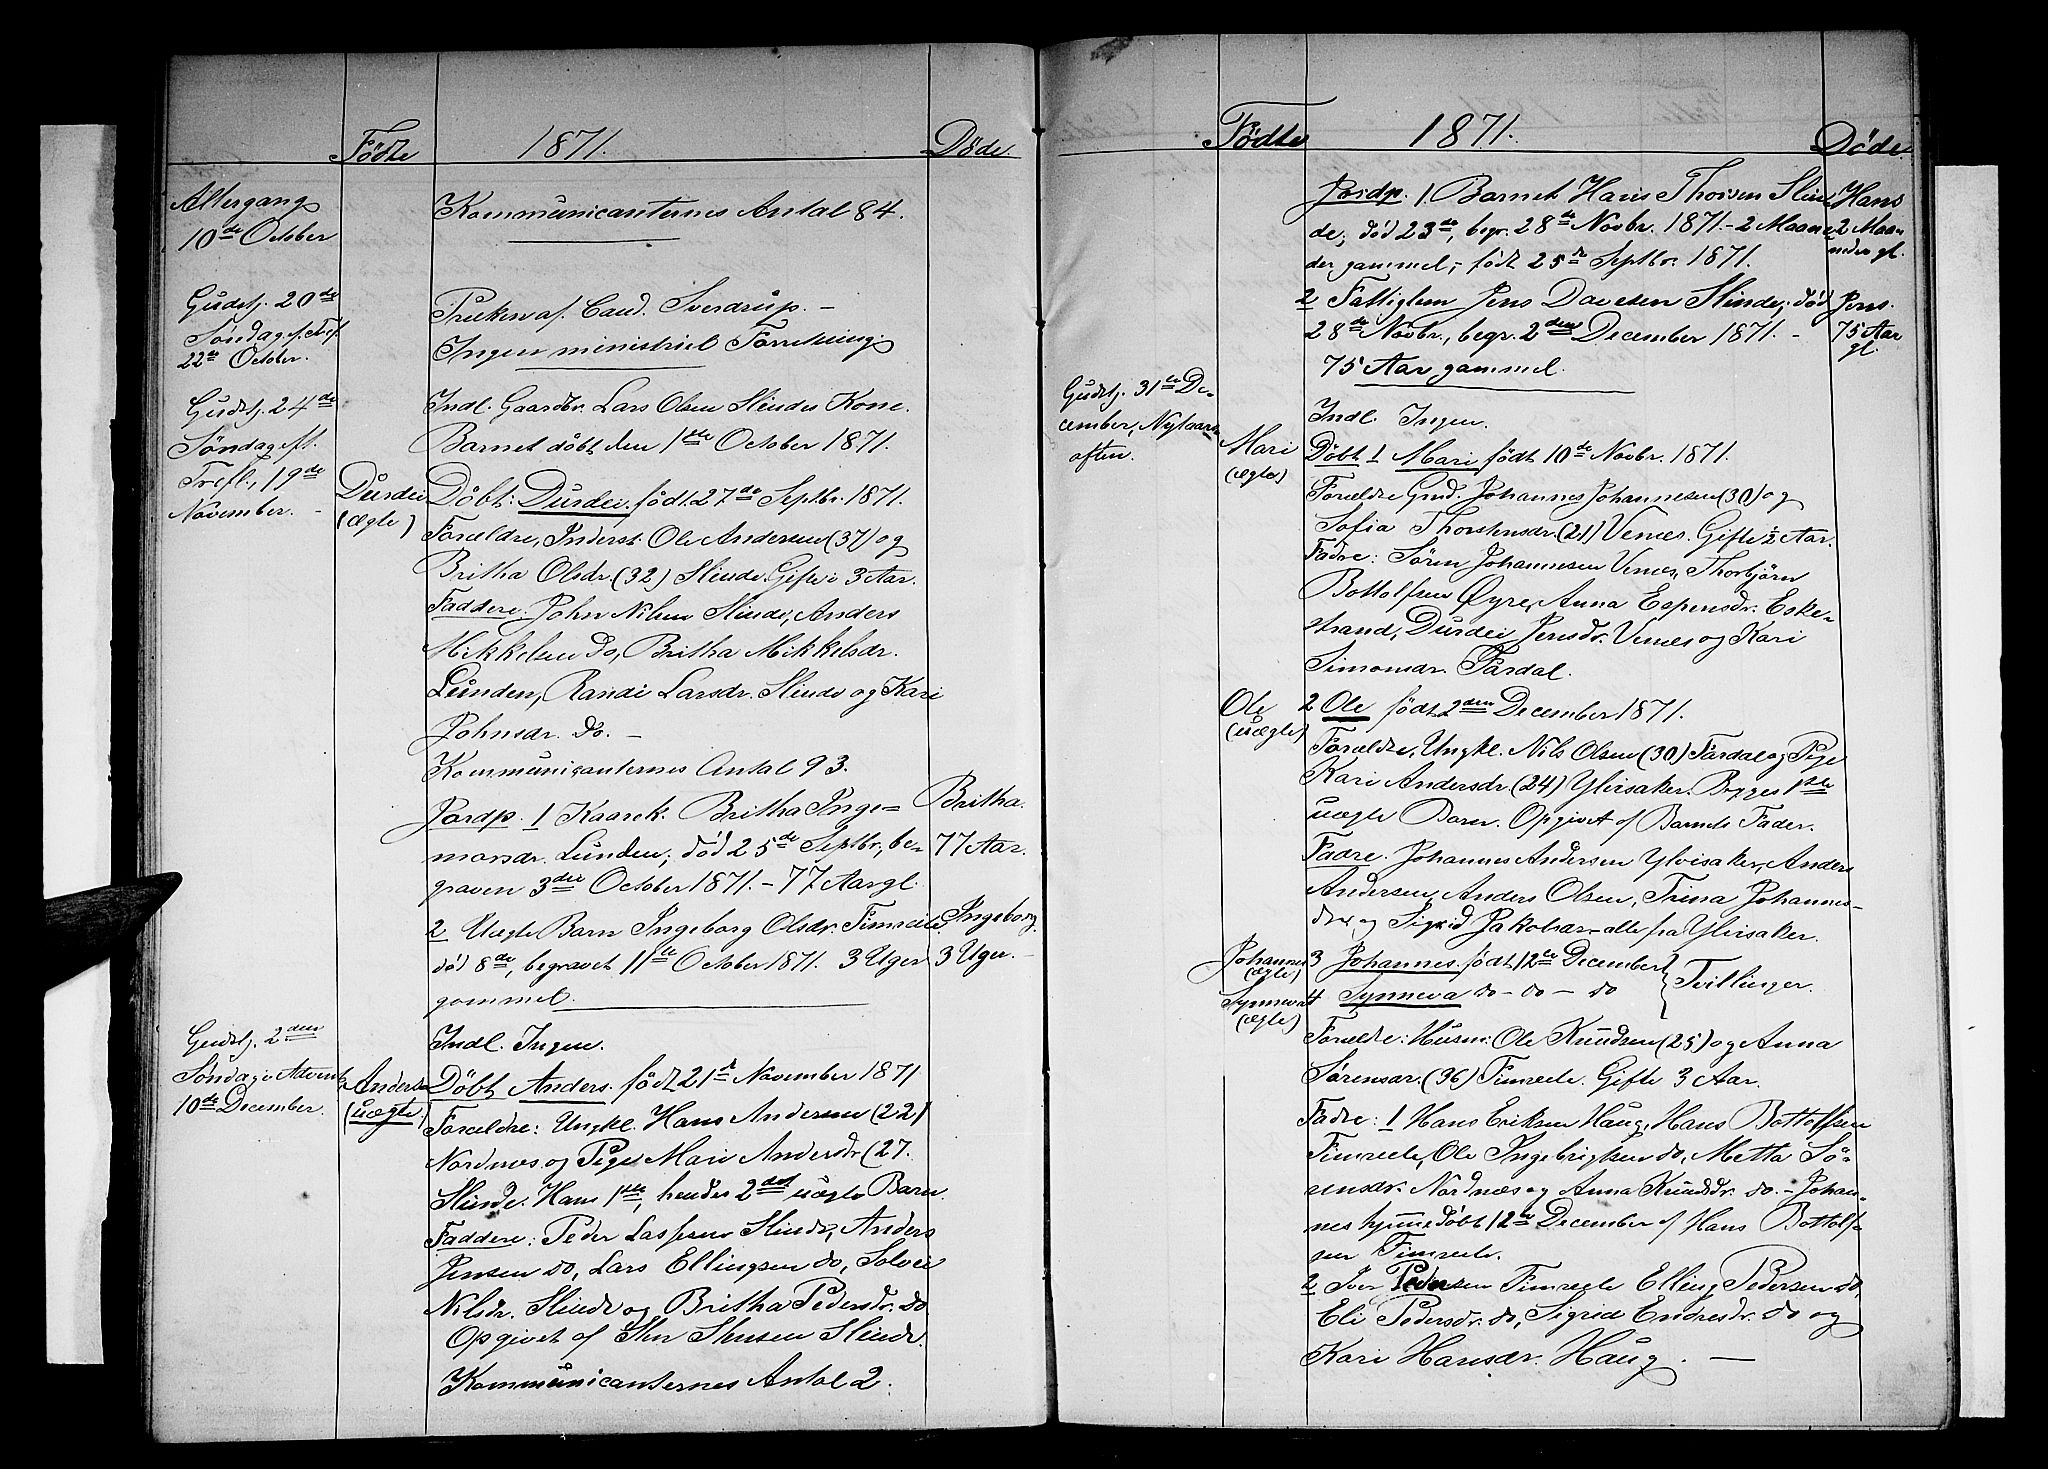 Fødte 1871. Døde.
Altergang
10de October
Kommunicanternes Antal 84.
Gudstj. 20de
Søndag f. Tref.
22de October.
Prækev. af Cand. Sverdrup. –
Ingen ministriel Forretning
Gudstj. 24de
Søndag eft.
Trefl., 19de
November. –
Indl. Gaardbr. Lars Olsen Slindes Kone.
Barnet døbt den 1ste October 1871.
Durdei
(ægte)
Døbt: Durdei. født 27de Septbr. 1871
Forældre, Inderst: Ole Andersen (37) og
Britha Olsdr. (32) Slinde. Gifte i 3 Aar.
Faddere. John Nilsen Slinde, Anders
Mikkelsen do, Britha Mikkelsdr.
Lunden, Randi Larsdr. Slinde og Kari
Johnsdr. do. –
Kommunicanternes Antal 93.
Jordp. 1 Kaarek. Britha Inge=
marsdr. Lunden; død 25de Septbr, be-
graven 3die October 1871. – 77 Aar gl.
Britha.
77 Aar.
2 Uægte Barn Ingeborg Olsdr. Fimreite,
død 8de, begravet 11te October 1871. 3 Uger
gammel.
Ingeborg.
3 Uger. –
Gudstj. 2den
Søndag i Advent,
10de December.
Indl. Ingen.
Anders
(uægte)
Døbt Anders. født 21de November 1871
Forældre: Ungkl. Hans Andersen (22)
Nordnæs og Pige Mari Andersdr (27.
Slinde. Hans 1ste, hendes 2det uægte Barn.
Faddere: Peder Lassesen Slinde, Anders
Jensen do, Lars Ellingsen do, Solvei
Nilsdr. Slinde og Britha Pedersdr. do
Opgivet af Slinde.
Kommunicanternes Antal 2.
Fødte 1871. Døde.
Jordp. 1 Barnet Hans Thorsen Slin
de, død 23de, begr. 28de Novbr. 1871. – 2 Maane
der gammel, – født 25de Septbr. 1871.
Hans
2 Maa-
neder gl.
2 Fattiglem Jens Davidsen Slinde, død
28de Novbr., begr. 2den December 1871. –
75 Aar gammel.
Jens.
75 Aar
gl.
Gudstj. 31te De-
cember, Nytaars
aften.
Indl. Ingen.
Mari
(ægte)
Døbt 1 Mari født 10de Novbr. 1871.
Forældre Gmd. Johannes Johannesen (30) og
Sofia Thorstensdr. (21) Venæs. Gifte ½ Aar.
Fadre: Søren Johannesen Venæs, Thorbjørn
Bottolfsen Øyre, Anna Espensdr. Eske-
strand, Durdei Jensdr. Venæs og Kari
Simonsdr. Fardal.
Ole
(uægte)
2 Ole født 2den December 1871.
Forældre, Ungkl. Nils Olsen (30) Fardal og Pige
Kari Andersdr. (24) Ylvisaker. Begges 1ste
uægte Barn. Opgivet af Barnets Fader.
Fadre. Johannes Andersen Ylvisaker, Anders
Andersen, Anders Olsen, Trina Johannes-
dr. og Sigrid Jakobsdr. – alle fra Ylvisaker.
Johannes
(ægte)
Synneva
(ægte)
3 Johannes. født 12te December
4 Synneva do – do – do
Tvillinger.
Forældre: Husm: Ole Knudsen (25) og Anna
Sørensdr. (36) Fimreite. Gifte 3 Aar.
Fadre: 1 Hans Eriksen Haug, Hans Bottolfsen
Fimreite, Ole Ingebrigtsen do, Metta Sø-
rensdr. Nordnæs og Anna Knudsdr. do. – Johan-
nes hjemmedøbt 12te December af Hans Bottolf-
sen Fimreite.
2 Iver Pedersen Fimreite Elling Pedersen do,
Eli Pedersdr. do, Sigrid Endresdr. do og
Kari Hansdr. Haug. –